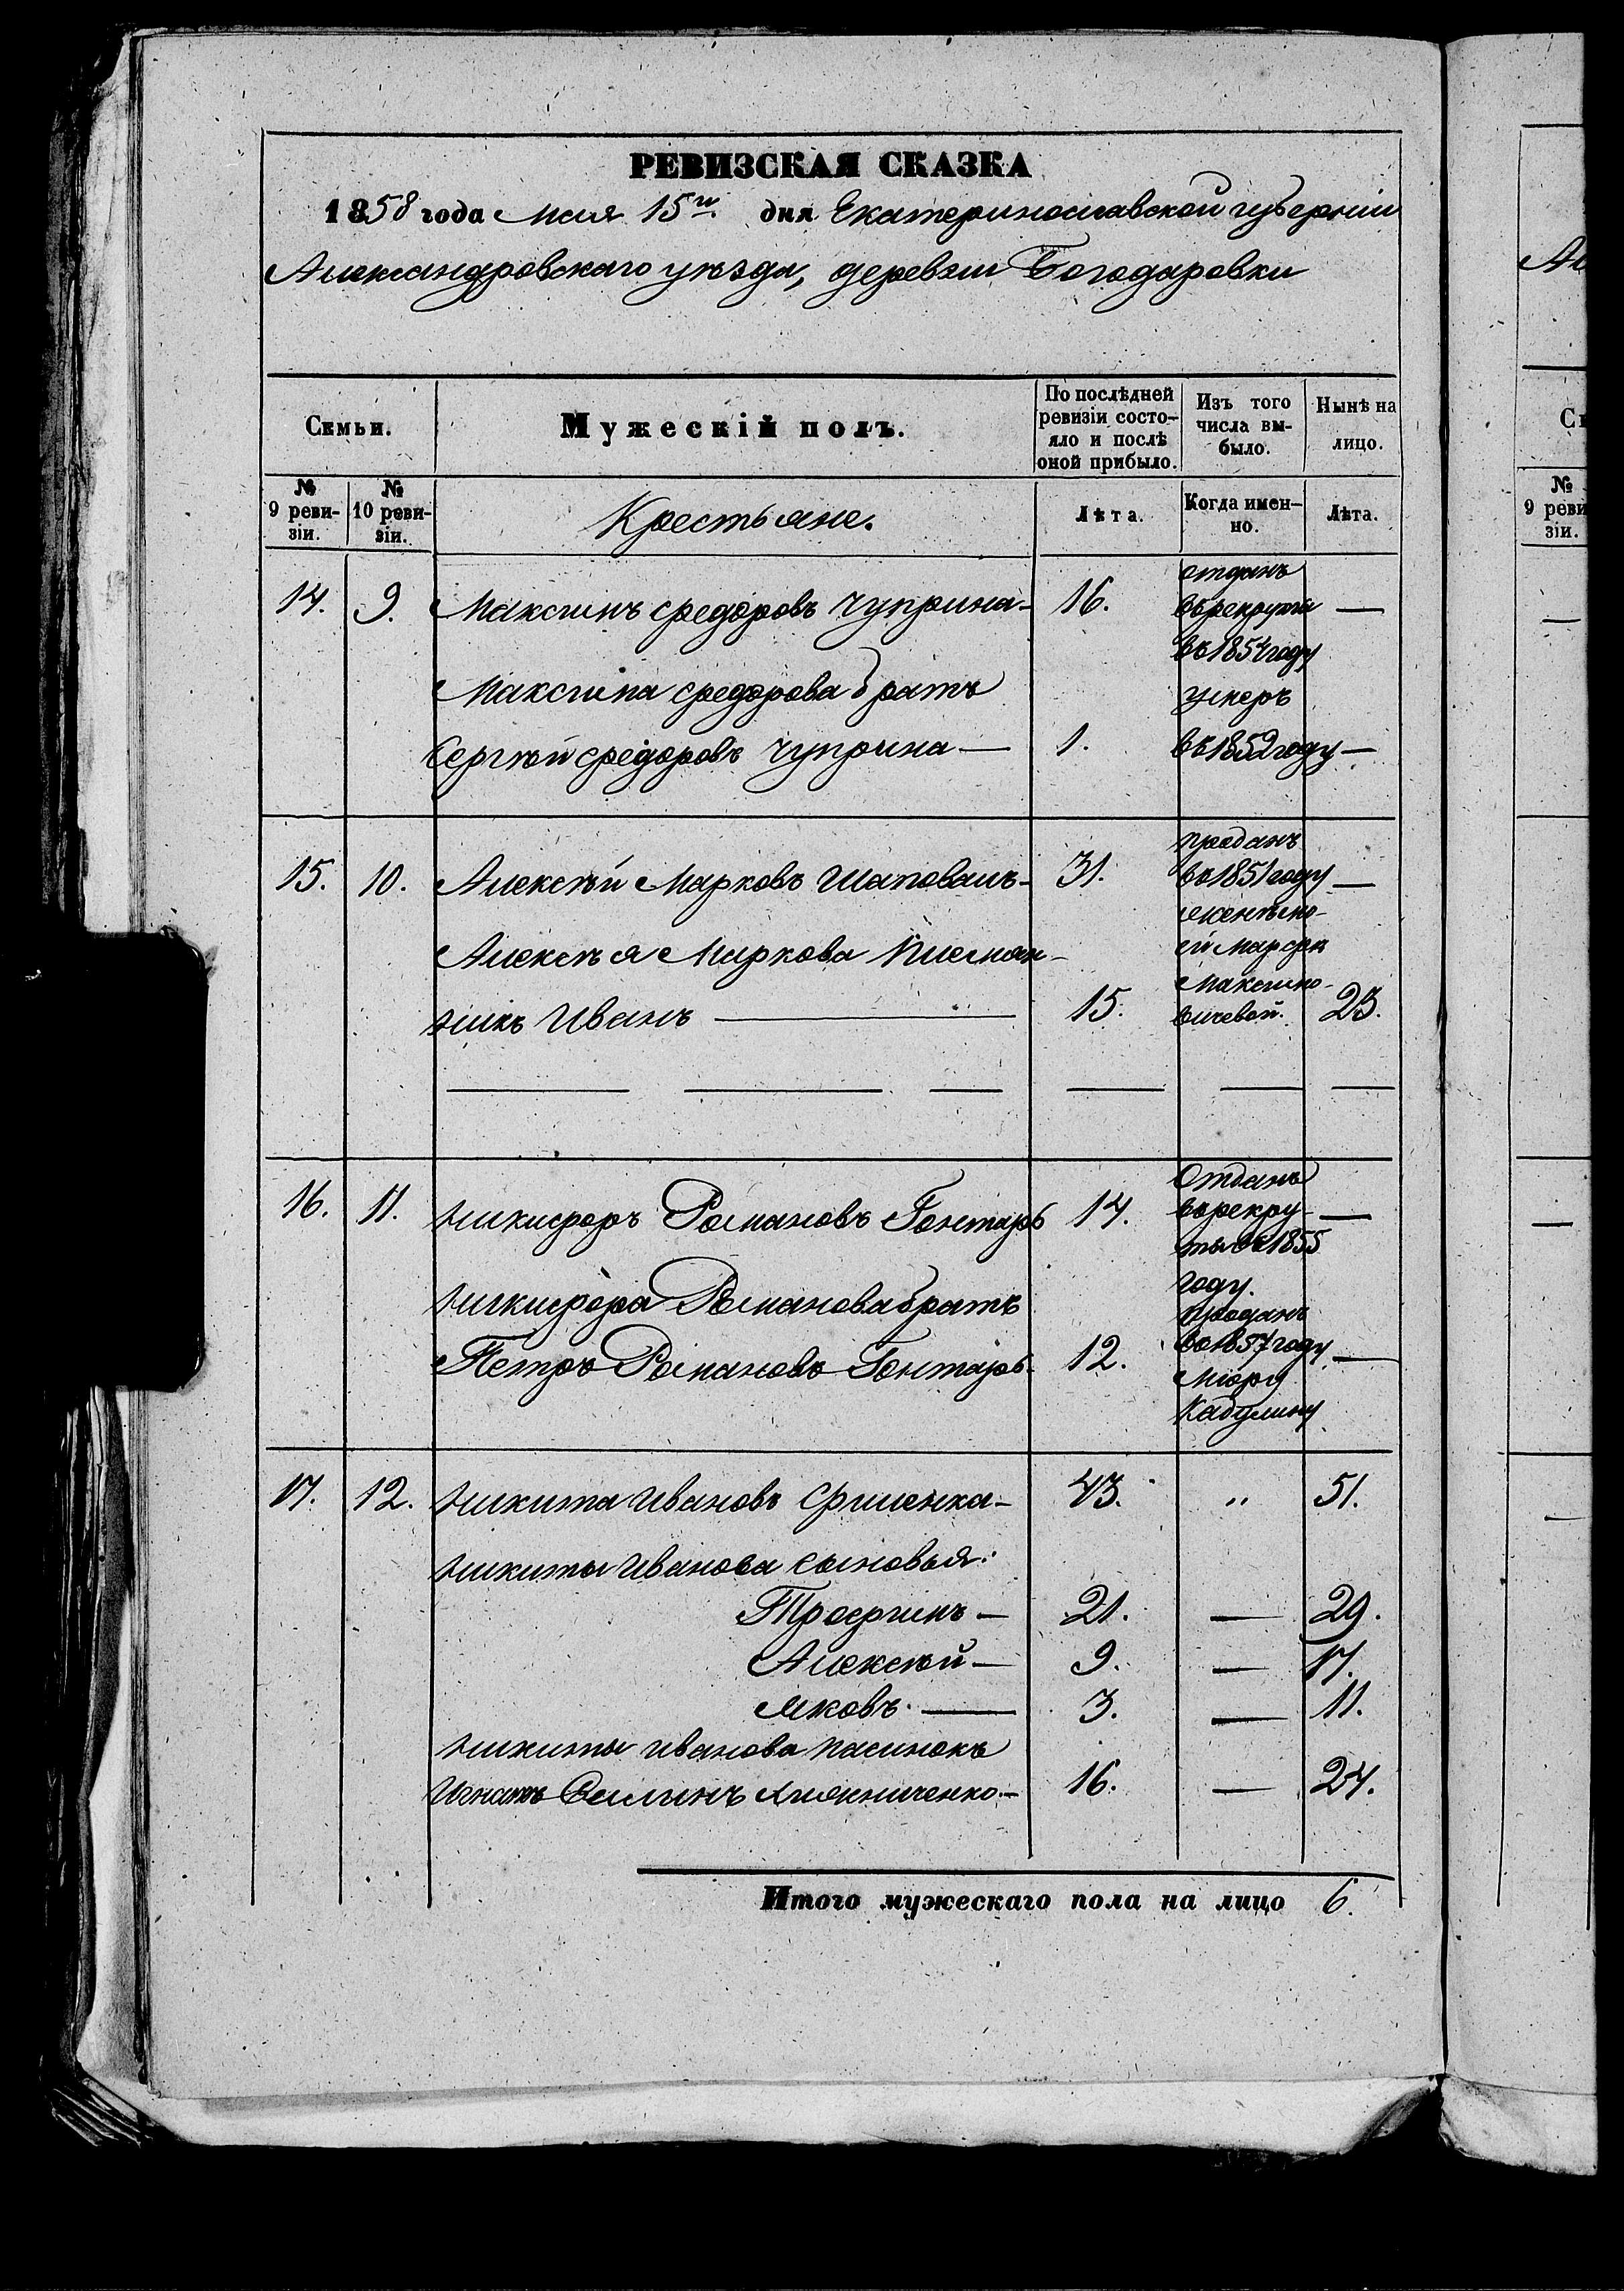 РЕВИЗСКАЯ СКАЗКА
1858 года Мая 15го дня Екатеринославской губерніи
Александровскаго уѣзда, деревни Богодаровки
Семьи.
Мужескій полъ.
По послѣдней ревизіи состо-
яло и послѣ
оной прибыло.
Изъ того
числа вы-
было.
Нынѣ на
лицо.
№
9 реви-
зіи.
№
10 реви-
зіи.
Крестьяне.
Лѣта.
Когда имен-
но.
Лѣта.
14. 9. Максимъ Федоровъ Чуприна — 16. отданъ
въ рекруты —
въ 1854 году
Максима Федорова братъ умеръ
Сергѣй Федоровъ Чуприна — 1. въ 1852 году —
15. 10. Алексѣй Марковъ Шаповалъ — 31. проданъ
въ 1851 году —
Алексѣя Маркова племян-
никъ Иванъ — 15. 23.
Марфѣ
Максимо-
вичевой.
16. 11. Никифоръ Романовъ Гонтарь 14. Отданъ
въ рекру- —
ты въ 1855
году.
Никифора Романова братъ
Петръ Романовъ Гонтарь — 12. проданъ
въ 1857 году —
17. 12. Никита Ивановъ Филенка — 43. " 51.
Никиты Иванова сыновья:
Трофимъ — 21. — 29.
Алексѣй — 9. — 17.
Яковъ — 3. — 11.
Никиты Иванова пасынокъ
Игнатъ — 16. — 24.
Итого мужескаго пола на лицо 6.
Ал
Се
№
9 реви
зіи.